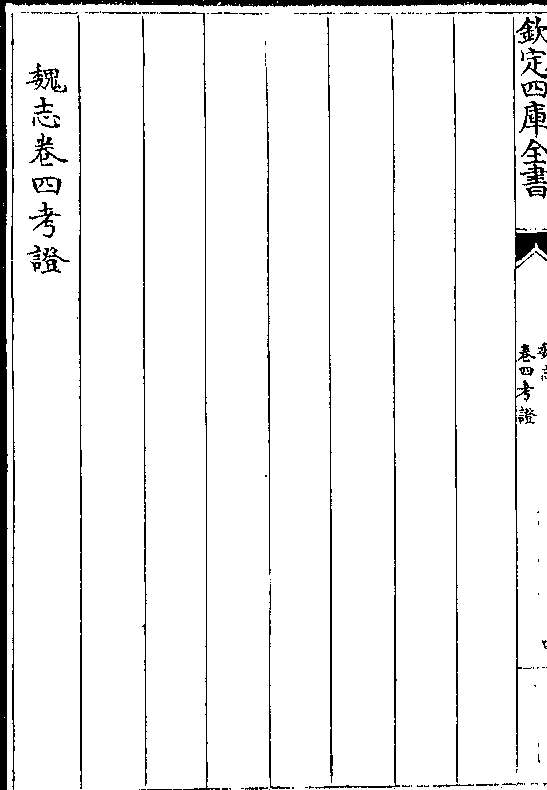 欽定四庫全書
魏志
卷四考證
魏志卷四考證